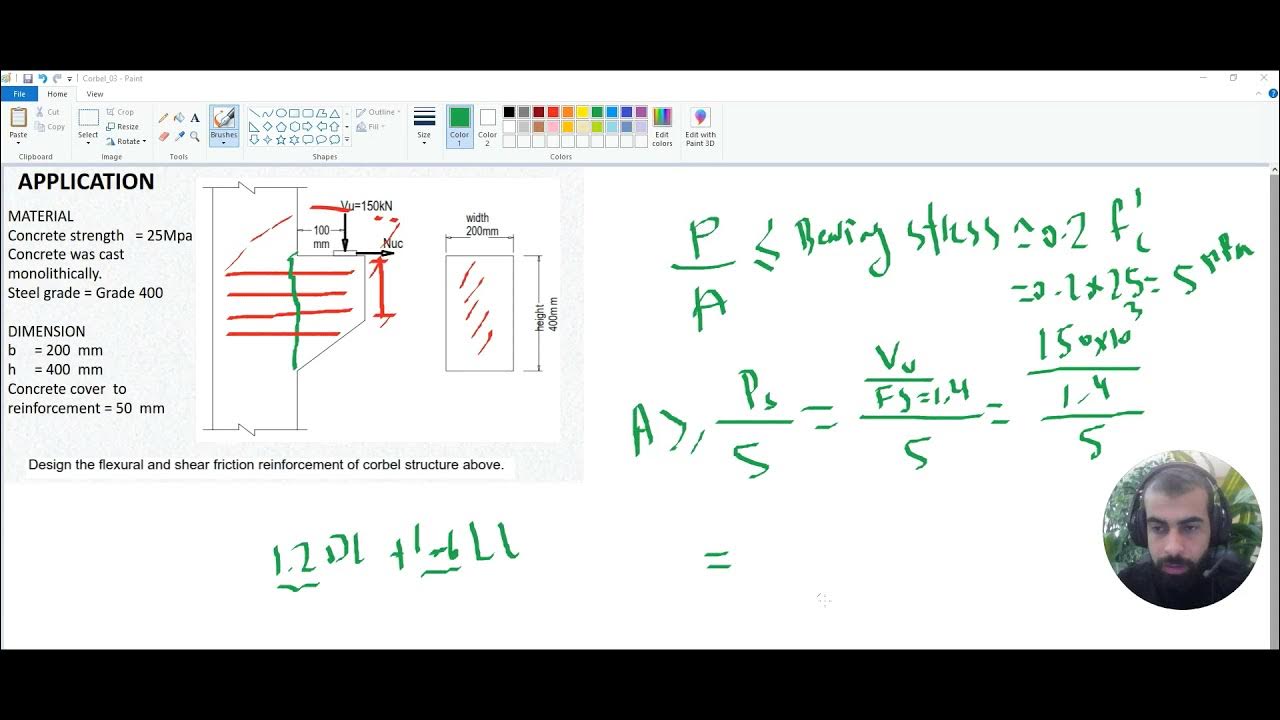 Corbel_03 - Paint
File
Home
View
Paste
Cut
Copy
Clipboard
Select
Crop
Resize
Rotate
Image
A
Tools
Brushes
Outline
Fill
Shapes
Size
Color 1
Color 2
Edit colors
Colors
Edit with Paint 3D
APPLICATION
MATERIAL
Concrete strength = 25Mpa
Concrete was cast
monolithically.
Steel grade = Grade 400
DIMENSION
b = 200 mm
h = 400 mm
Concrete cover to
reinforcement = 50 mm
Vu=150kN
100
mm
Nuc
width
200mm
height
400mm
Design the flexural and shear friction reinforcement of corbel structure above.
P/A ≤ Bearing stress = 0.2 f'c
= 0.2 × 25 = 5 MPa
A ≥, Ps/5 = (Vu/FS=1,4)/5 = (150×10³/1,4)/5
1.2 DL + 1.6 LL
=